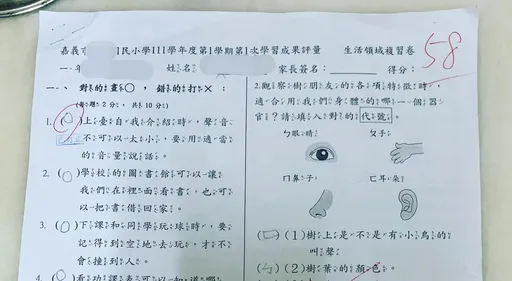 嘉義市 國民小學111學年度第1學期第1次學習成果評量 生活領域複習卷
一年 姓名 家長簽名：______ 得分：
58
一、對的畫○，錯的打×：
(每題2分，共10分)
1. (○)上臺自我介紹時，聲音
不可以太小，要用適當
的音量說話。
2. (○)學校的圖書館可以讓
我們在裡面看書，也可
以把書借回家。
3. (○)下課和同學玩球時，要
記得到空地去玩，才不
會撞到人。
4. (○)看功課表可以知道哪
二.觀察樹朋友的各項特徵時，
適合用我們身體的哪一個器
官？請填入對的代號。
ㄅ眼睛 ㄆ手
ㄇ鼻子 ㄈ耳朵
(ㄈ)(1)樹上是不是有小鳥的
叫聲
(ㄅ)(2)樹葉的顏色。